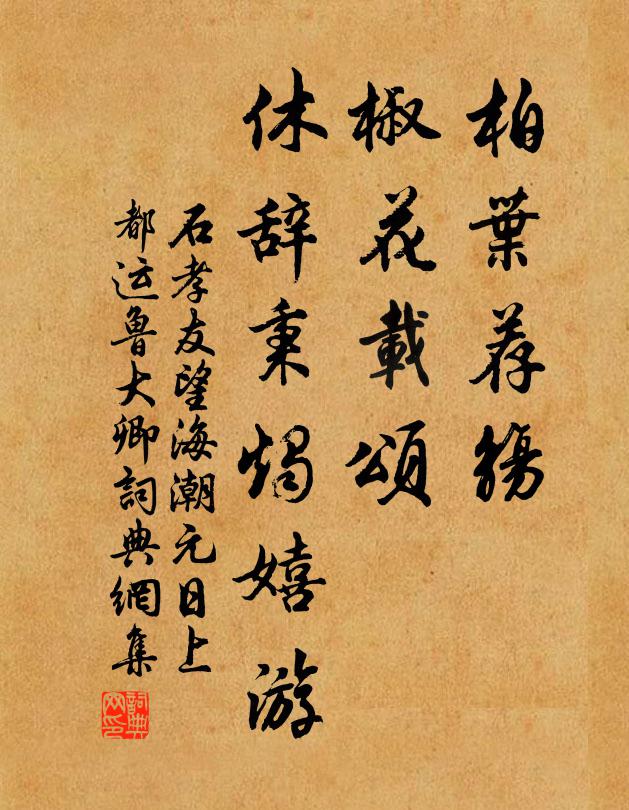 柏葉荐觴
椒花載頌
休辞秉燭嬉游
石孝友望海潮元日上
都运魯大卿詞典網集
詞典网印